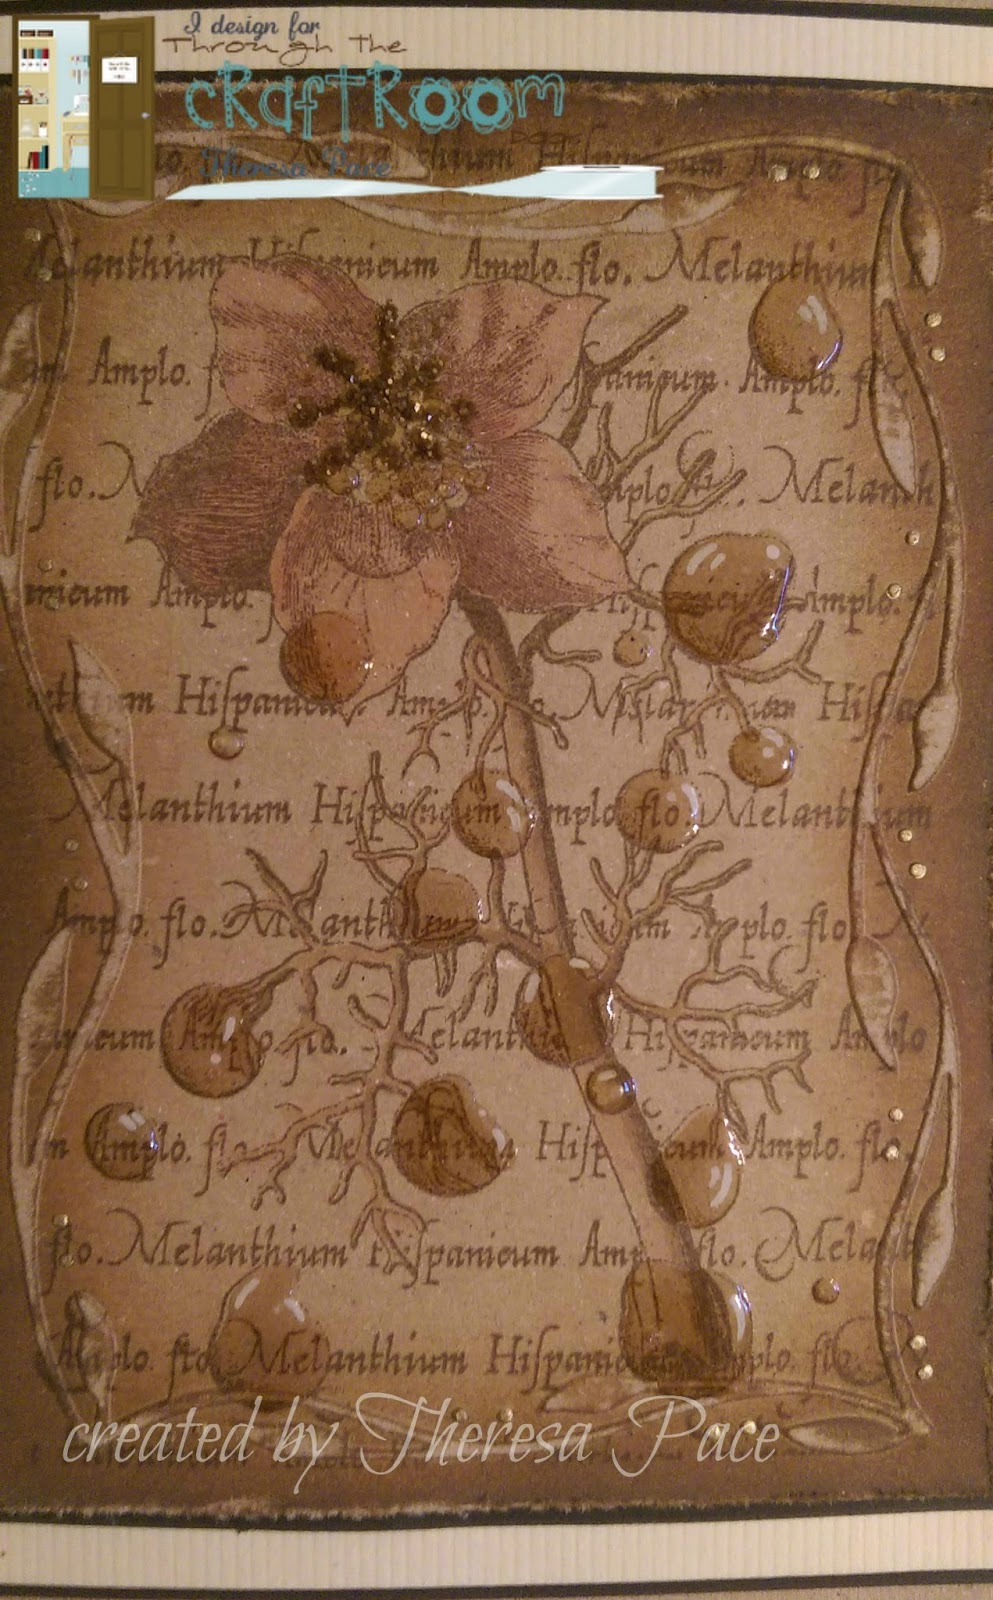 I design for
Through The
cRaftRoom
Theresa Pace
thium Hiſpanicum Amplo. flo
Melanthium Hiſpanicum Amplo. flo. Melanthium
Amplo. f ſpanicum. Amplo. flo.
flo. M mplo Melanth
nicum Amplo. Amplo.
nthium Hiſpanicum Am flo. M Hiſpa
Melanthium Hiſpanicum Amplo. flo. Melanthium
Amplo. flo. Melanthium Hiſpanicum Amplo. flo.
nicum Amplo. flo. Melanthium Hiſpanicum Amplo
m Amplo. flo. Melanthium Hiſpanicum Amplo. flo.
flo. Melanthium Hiſpanicum Amp flo. Melant
Amplo. flo. Melanthium Hiſpanicum Amplo. flo.
created by Theresa Pace